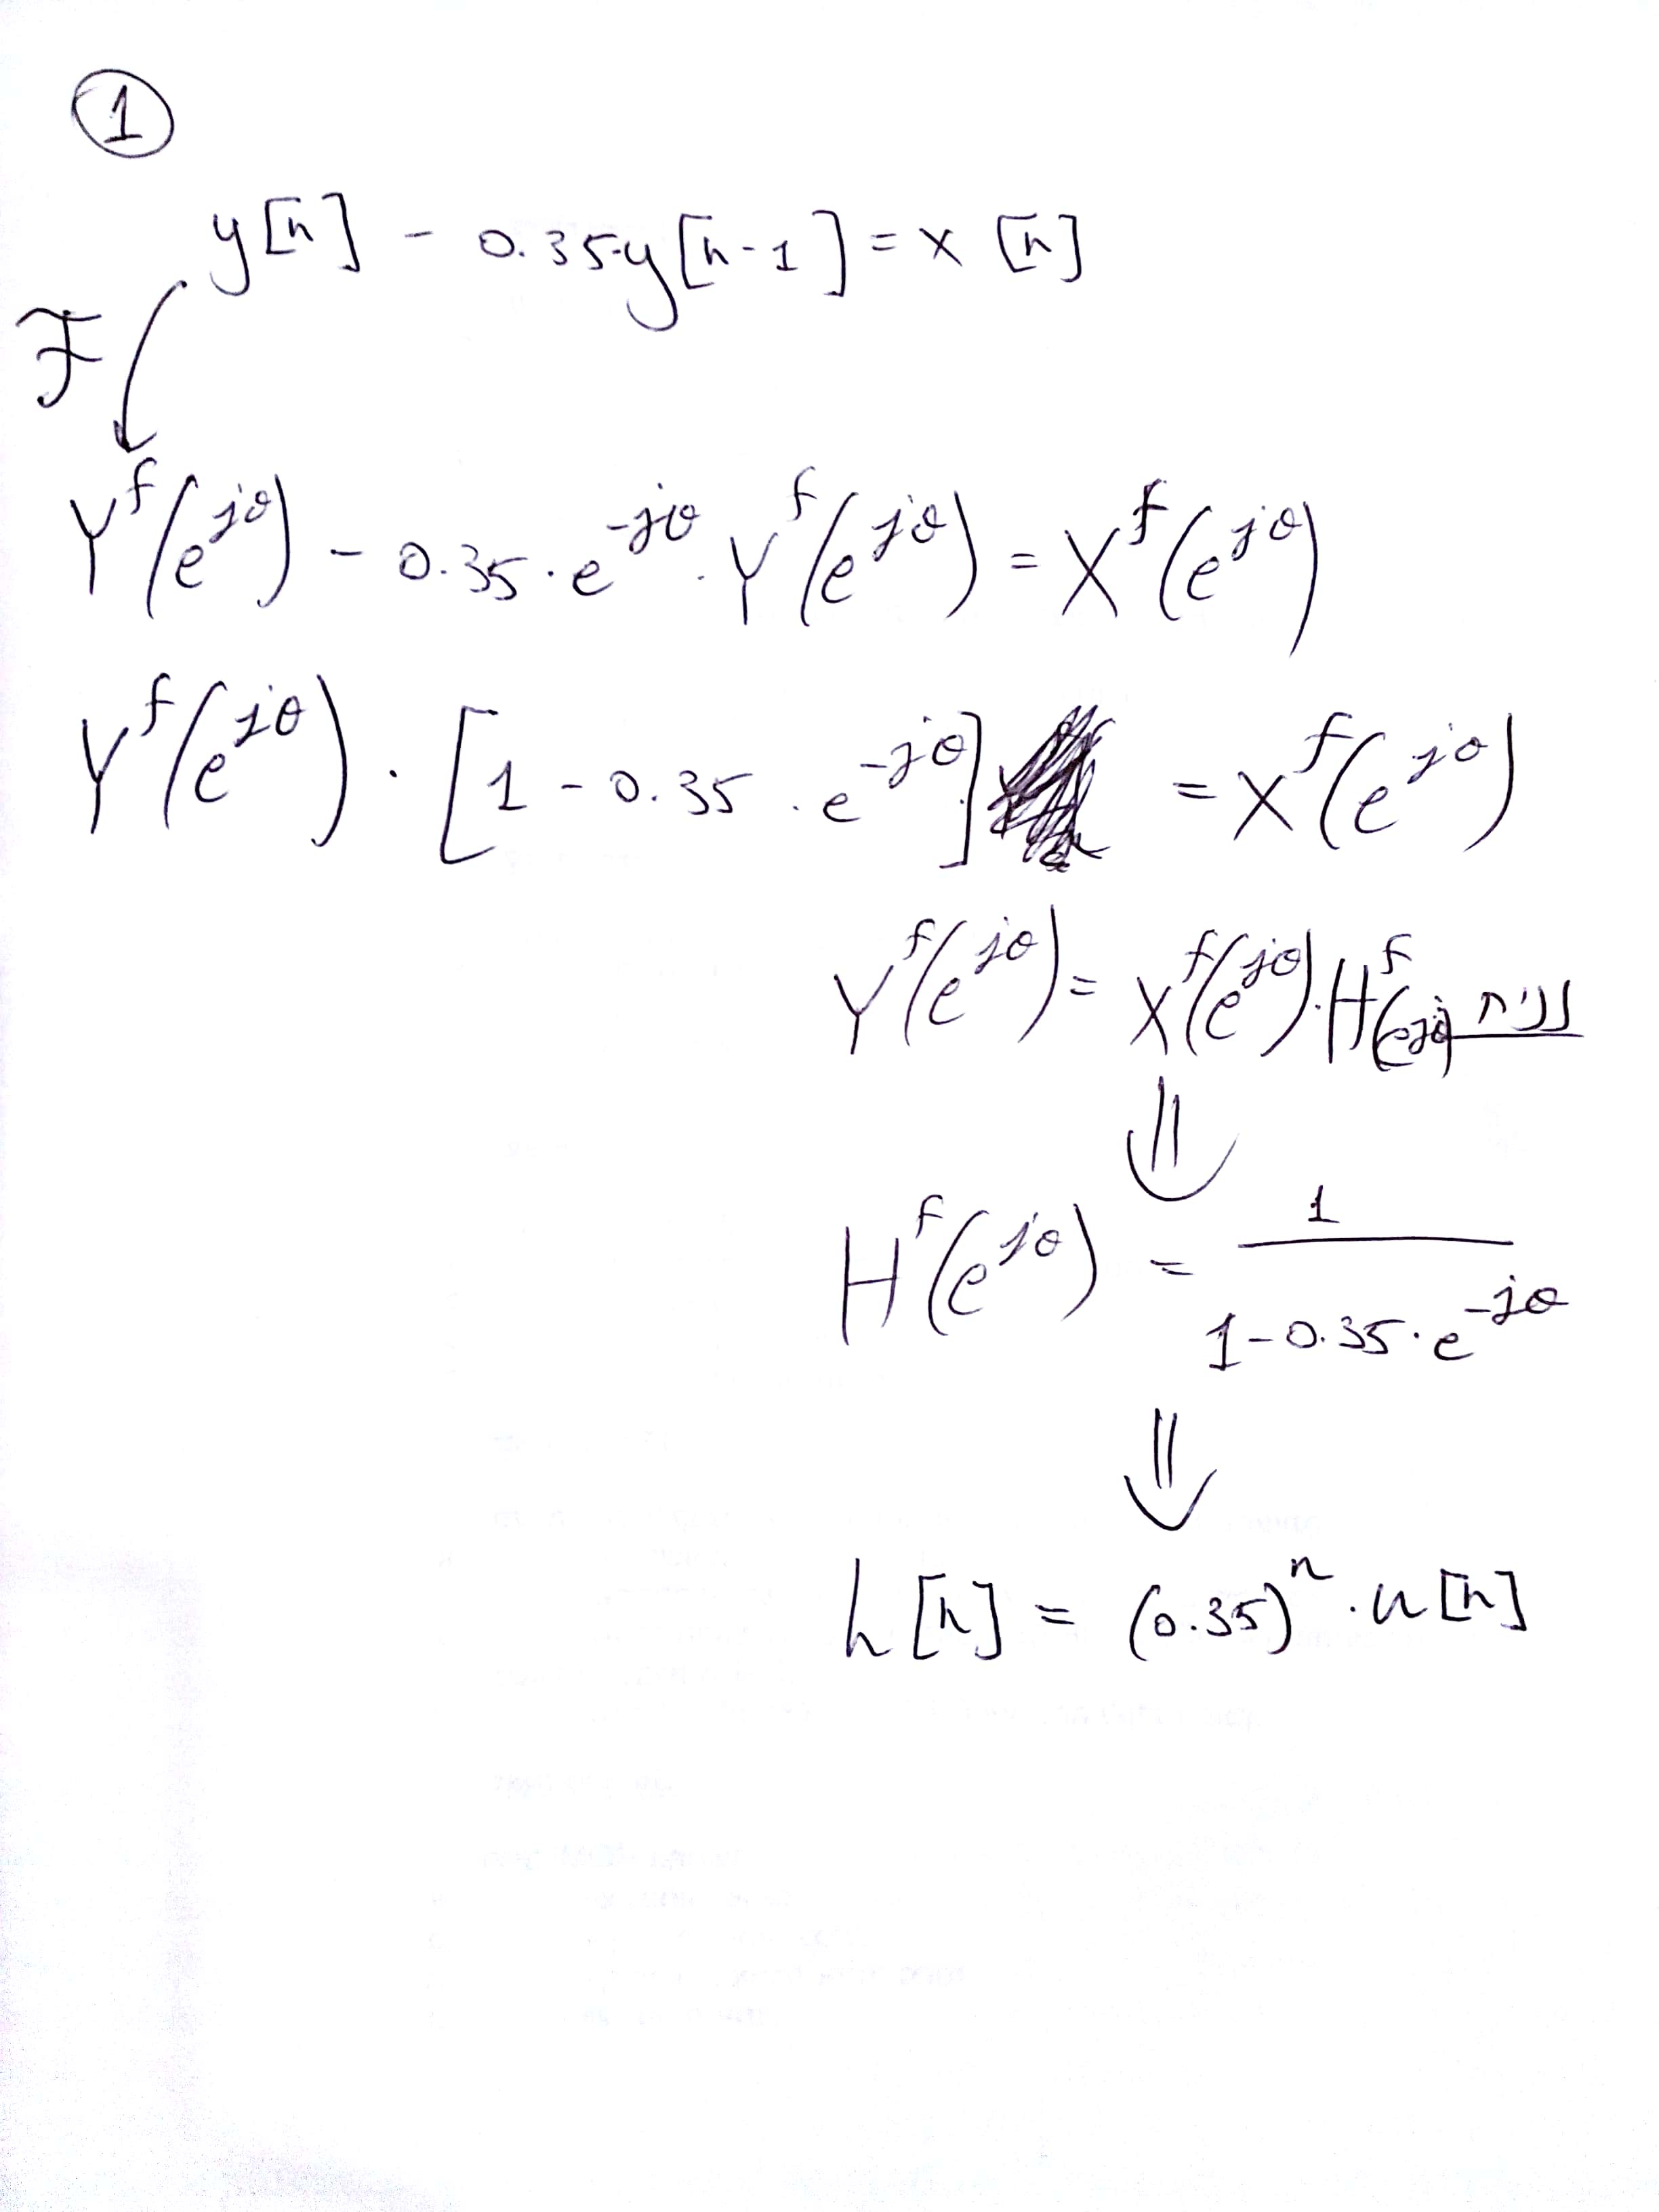 1
y[n] - 0.35·y[n-1] = x[n]
F
Y^f(e^{jθ}) - 0.35·e^{-jθ}·Y^f(e^{jθ}) = X^f(e^{jθ})
Y^f(e^{jθ})·[1 - 0.35·e^{-jθ}] = X^f(e^{jθ})
Y^f(e^{jθ}) = X^f(e^{jθ})·H^f(e^{jθ})
⇓
H^f(e^{jθ}) = 1/(1-0.35·e^{-jθ})
⇓
h[n] = (0.35)^n·u[n]